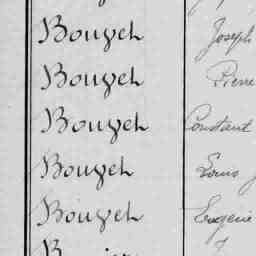 Bouyet Joseph
Bouyet Pierre
Bouyet Constant
Bouyet Louis
Bouyet Eugène